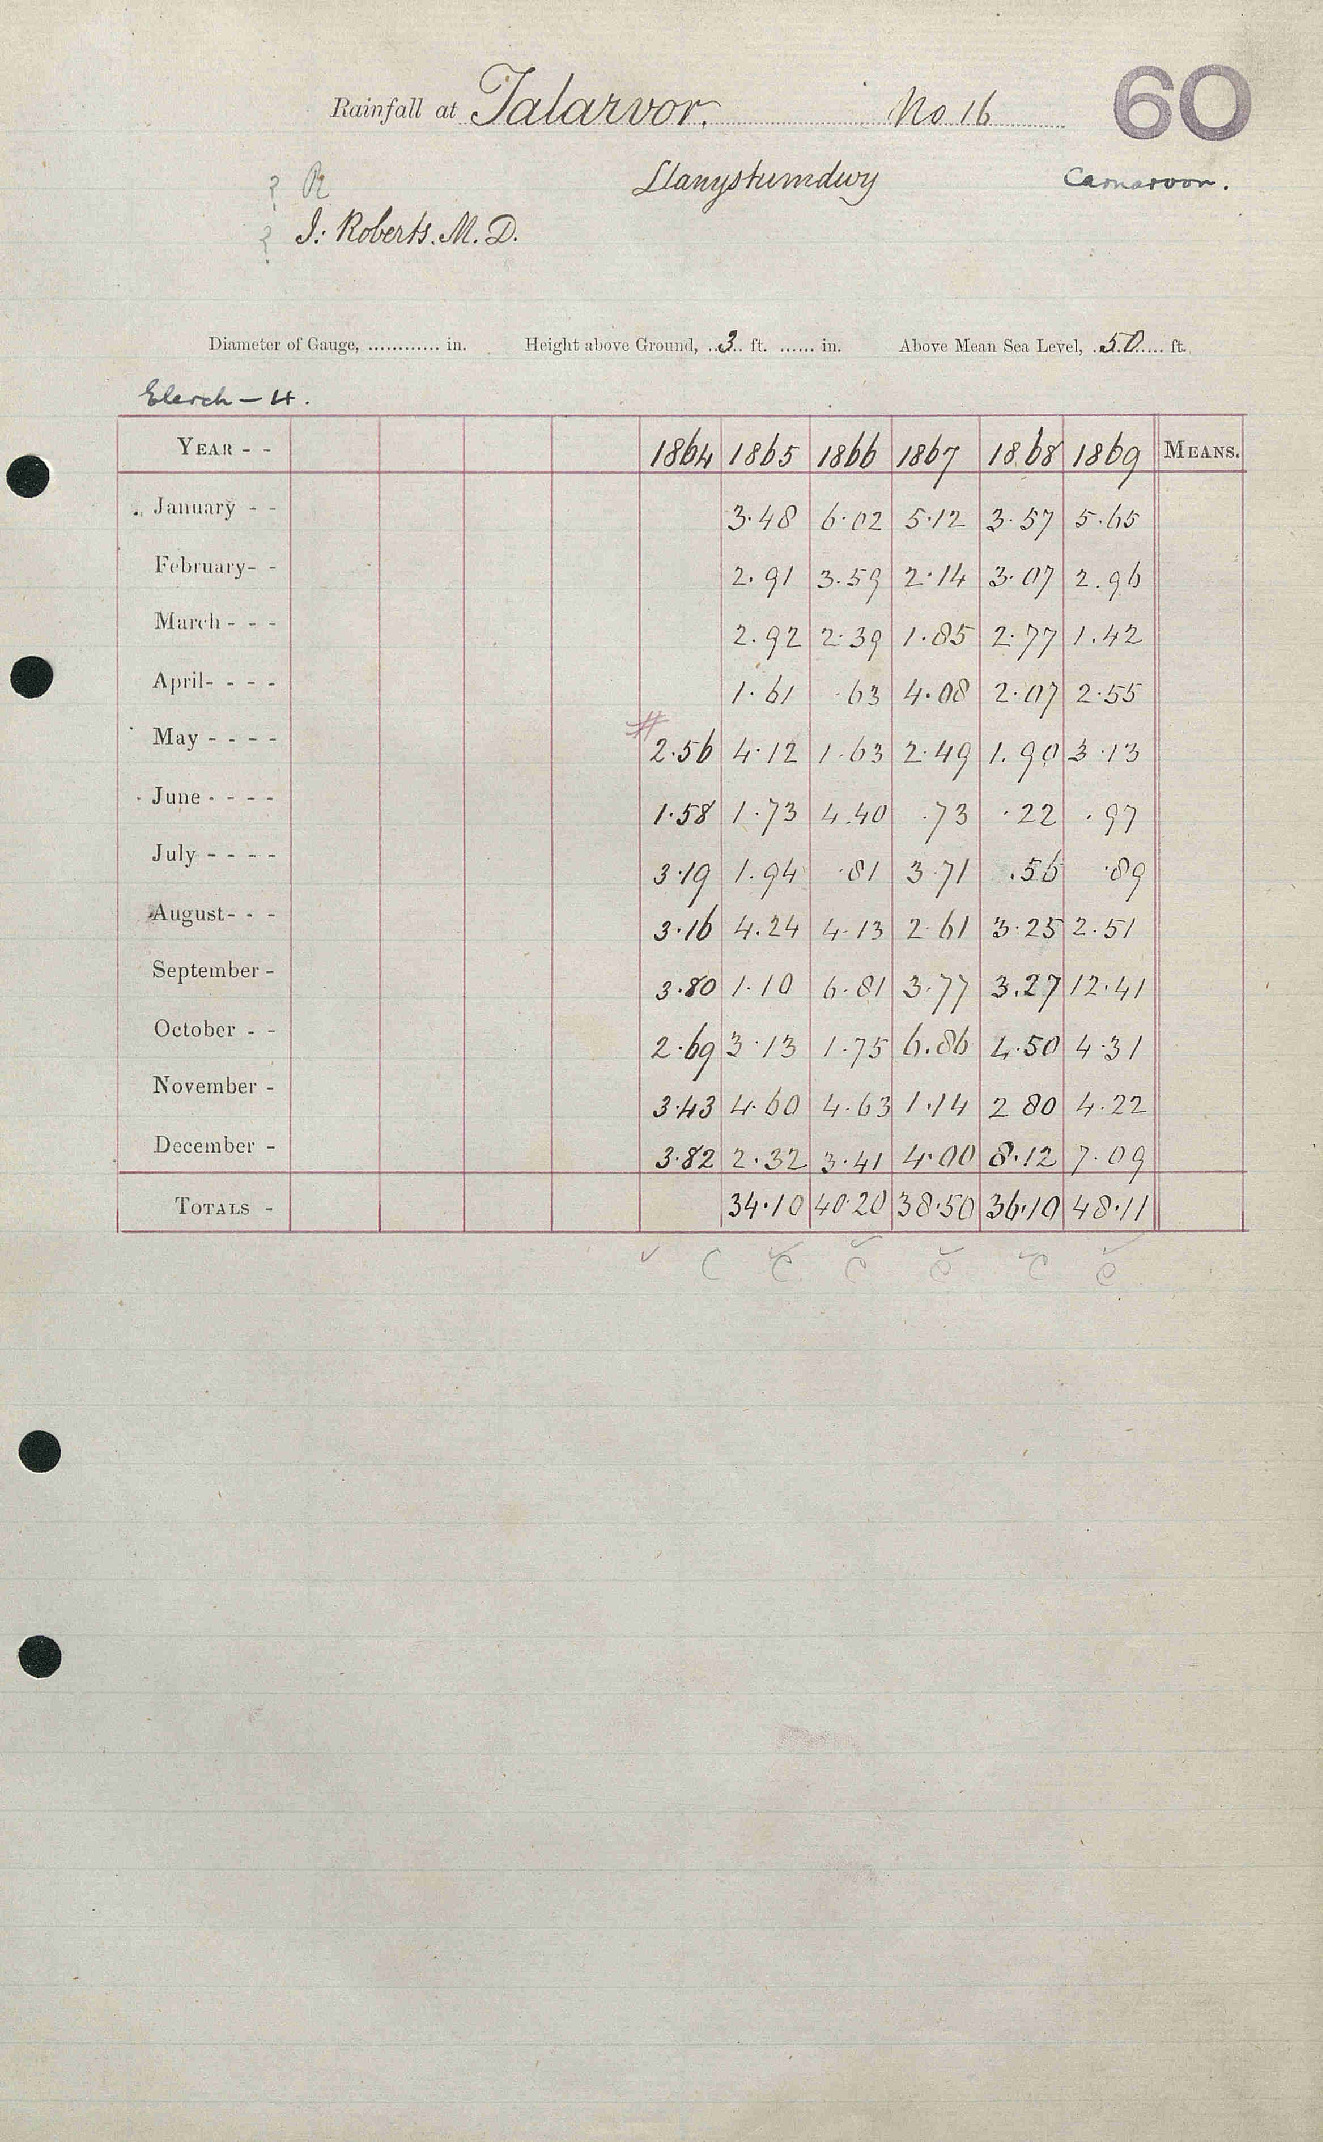 Rainfall at Talarvor. No 16 60
? R Llanystumdwy Carnarvon.
? J: Roberts. M. D.
Diameter of Gauge, ............ in. Height above Ground, ..3.. ft. ...... in. Above Mean Sea Level, .50..... ft.
Elerch — 4.
YEAR - - 1864 1865 1866 1867 1868 1869 MEANS.
January - - 3.48 6.02 5.12 3.57 5.65
February- - 2.91 3.59 2.14 3.07 2.96
March - - - 2.92 2.39 1.85 2.77 1.42
April- - - - 1.61 .63 4.08 2.07 2.55
#
May - - - - 2.56 4.12 1.63 2.49 1.90 3.13
June - - - - 1.58 1.73 4.40 .73 .22 .97
July - - - - 3.19 1.94 .81 3.71 .56 .89
August- - - 3.16 4.24 4.13 2.61 3.25 2.51
September - 3.80 1.10 6.81 3.77 3.27 12.41
October - - 2.69 3.13 1.75 6.86 4.50 4.31
November - 3.43 4.60 4.63 1.14 2 80 4.22
December - 3.82 2.32 3.41 4.00 8.12 7.09
TOTALS - 34.10 40.20 38.50 36.10 48.11
✓ C C C C C C